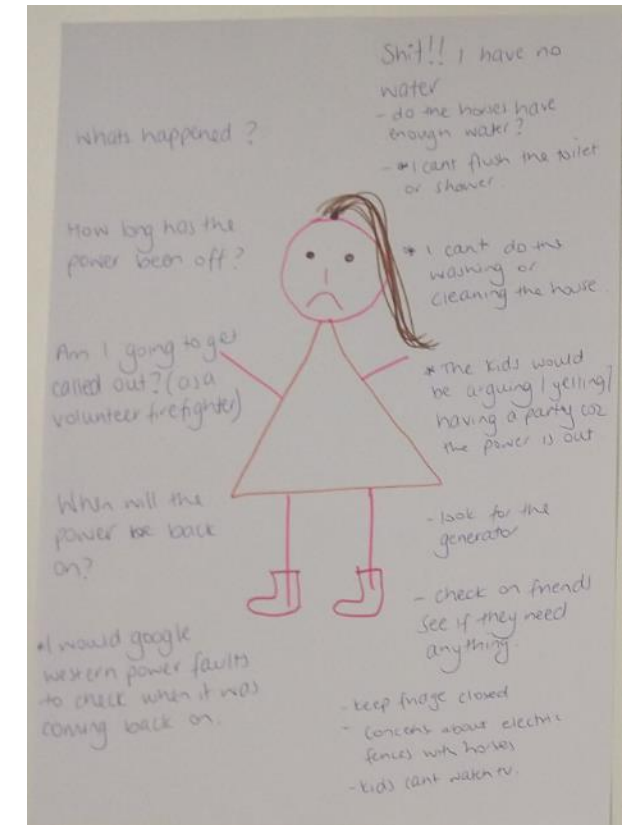 Whats happened ?
How long has the
power been off?
Am I going to get
called out? (as a
volunteer firefighter)
When will the
power be back
on?
*I would google
western power faults
to check when it was
coming back on.
Shit!! I have no
water
- do the horses have
enough water?
- *I cant flush the toilet
or shower.
* I cant do the
washing or
cleaning the house.
* The kids would
be arguing / yelling /
having a party coz
the power is out
- look for the
generator
- check on friends
see if they need
anything.
- keep fridge closed
- concerns about electric
fences with horses
- kids cant watch tv.